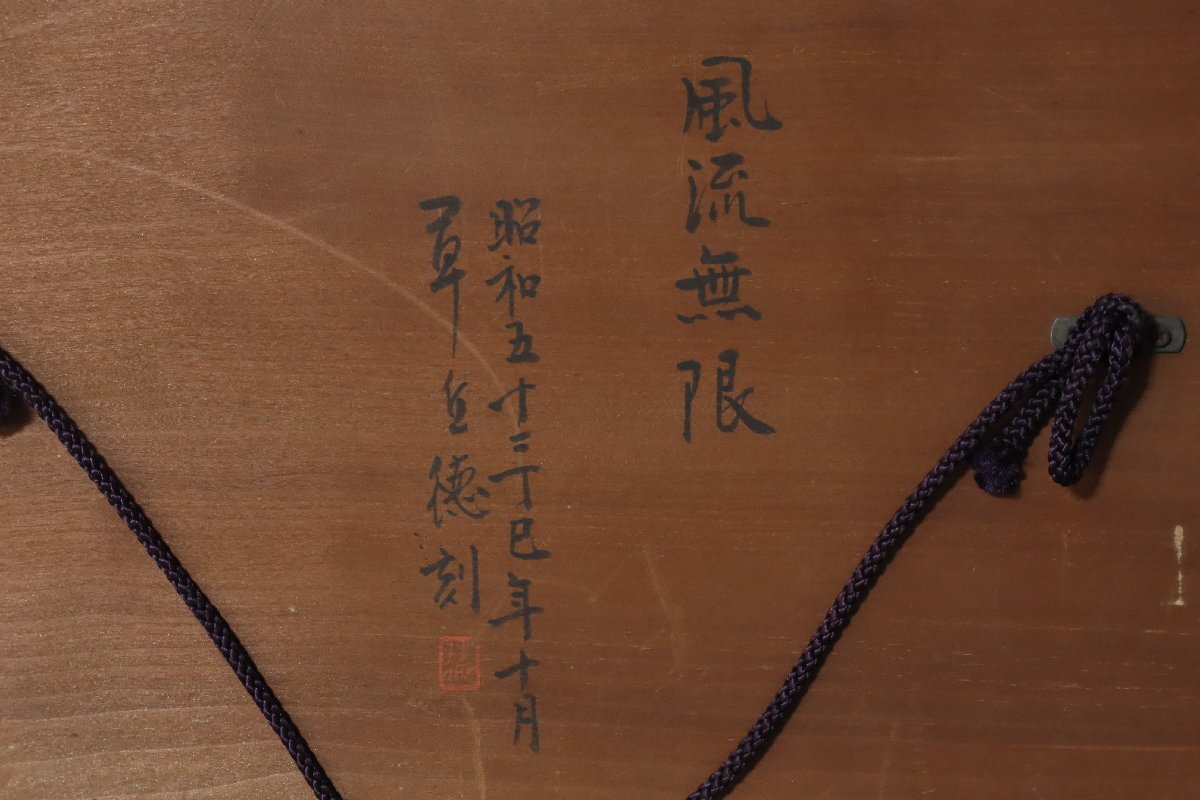 風流無限
昭和五十二丁巳年十月
丘徳刻